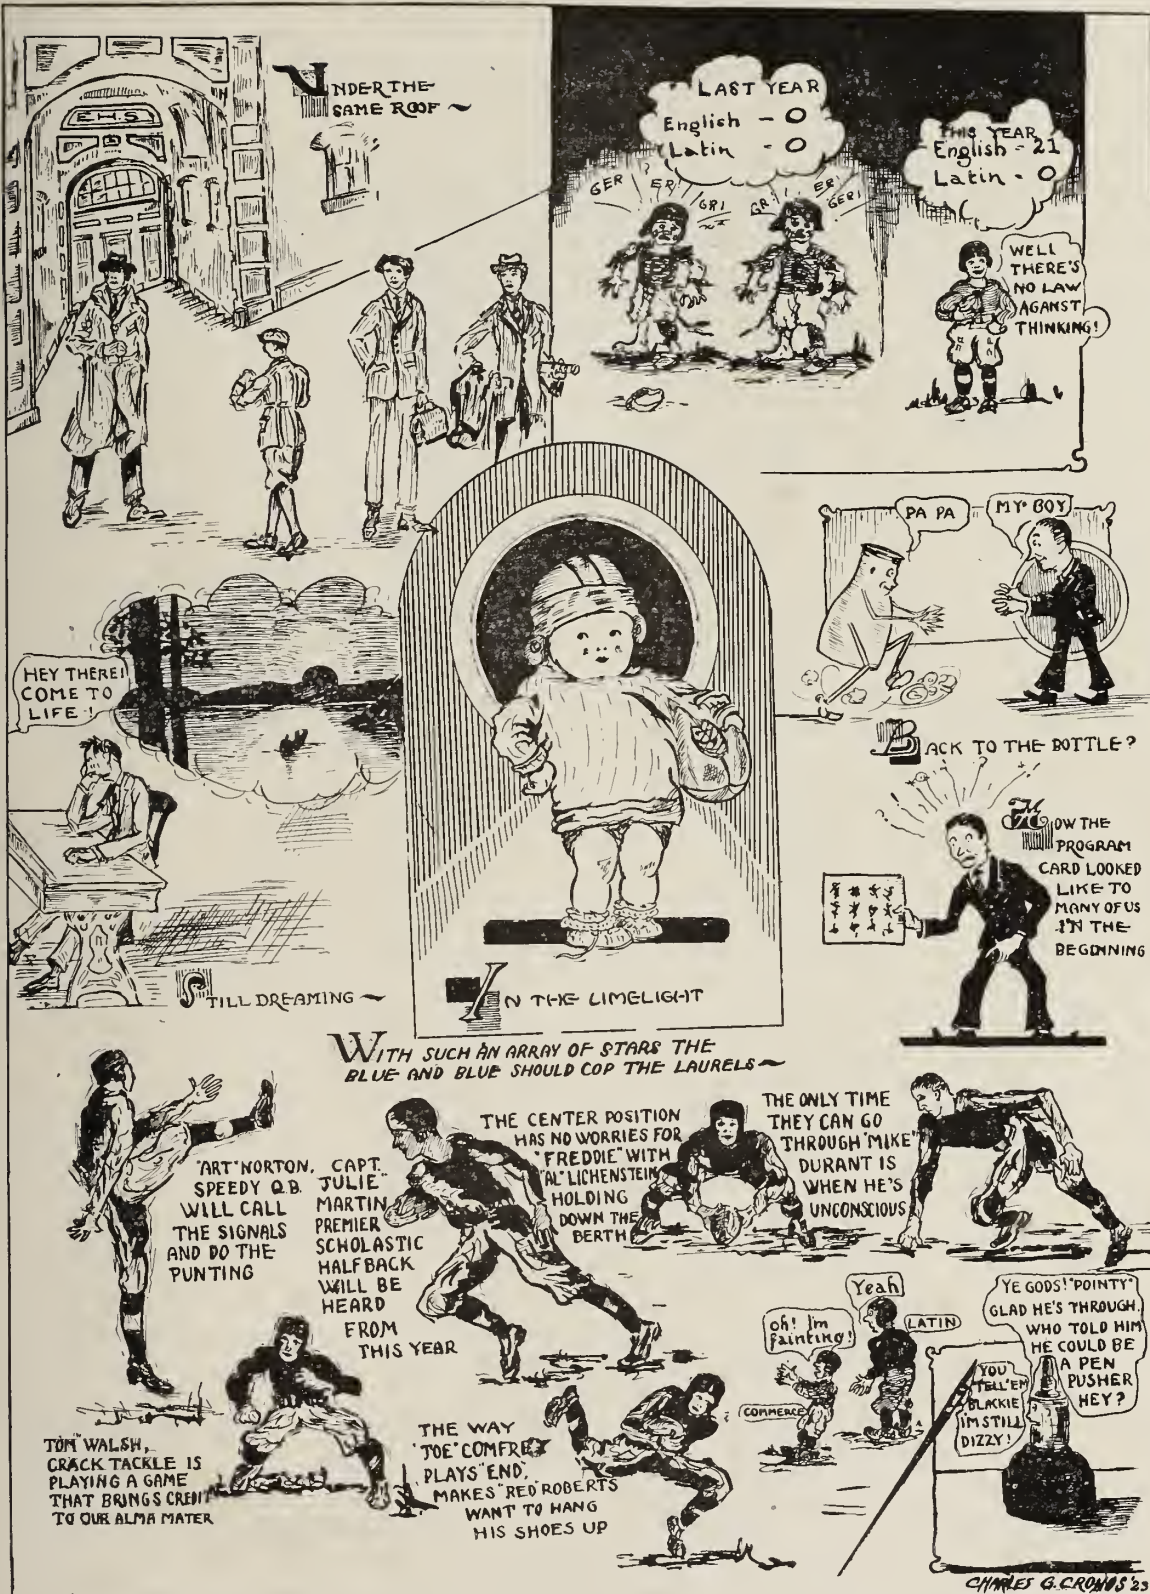 UNDER THE
SAME ROOF ~
E.H.S.
LAST YEAR
English - 0
Latin - 0
GER ER! GR!
GR! ER! GER!
THIS YEAR
English - 21
Latin - 0
WELL
THERE'S
NO LAW
AGANST
THINKING!
PA PA
MY BOY
BACK TO THE BOTTLE?
HEY THERE!
COME TO
LIFE!
STILL DREAMING ~
IN THE LIMELIGHT
HOW THE
PROGRAM
CARD LOOKED
LIKE TO
MANY OF US
IN THE
BEGINNING
WITH SUCH AN ARRAY OF STARS THE
BLUE AND BLUE SHOULD COP THE LAURELS ~
"ART" NORTON,
SPEEDY Q.B.
WILL CALL
THE SIGNALS
AND DO THE
PUNTING
CAPT.
"JULIE"
MARTIN
PREMIER
SCHOLASTIC
HALFBACK
WILL BE
HEARD
FROM
THIS YEAR
THE CENTER POSITION
HAS NO WORRIES FOR
"FREDDIE" WITH
"AL" LICHENSTEIN
HOLDING
DOWN THE
BERTH
THE ONLY TIME
THEY CAN GO
THROUGH "MIKE"
DURANT IS
WHEN HE'S
UNCONSCIOUS
TOM WALSH,
CRACK TACKLE IS
PLAYING A GAME
THAT BRINGS CREDIT
TO OUR ALMA MATER
THE WAY
"JOE" COMFREY
PLAYS "END",
MAKES "RED" ROBERTS
WANT TO HANG
HIS SHOES UP
oh! I'm
fainting!
COMMERCE
Yeah
LATIN
YE GODS! "POINTY"
GLAD HE'S THROUGH.
WHO TOLD HIM
HE COULD BE
A PEN
PUSHER
HEY?
YOU
TELL 'EM
BLACKIE
I'M STILL
DIZZY!
CHARLES G. CRONOS '23